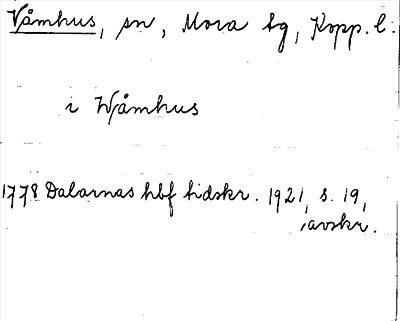 Våmhus, sn, Mora tg, Kopp. l:
i Wåmhus
1778 Dalarnas hbf tidskr. 1921, s. 19,
avskr.